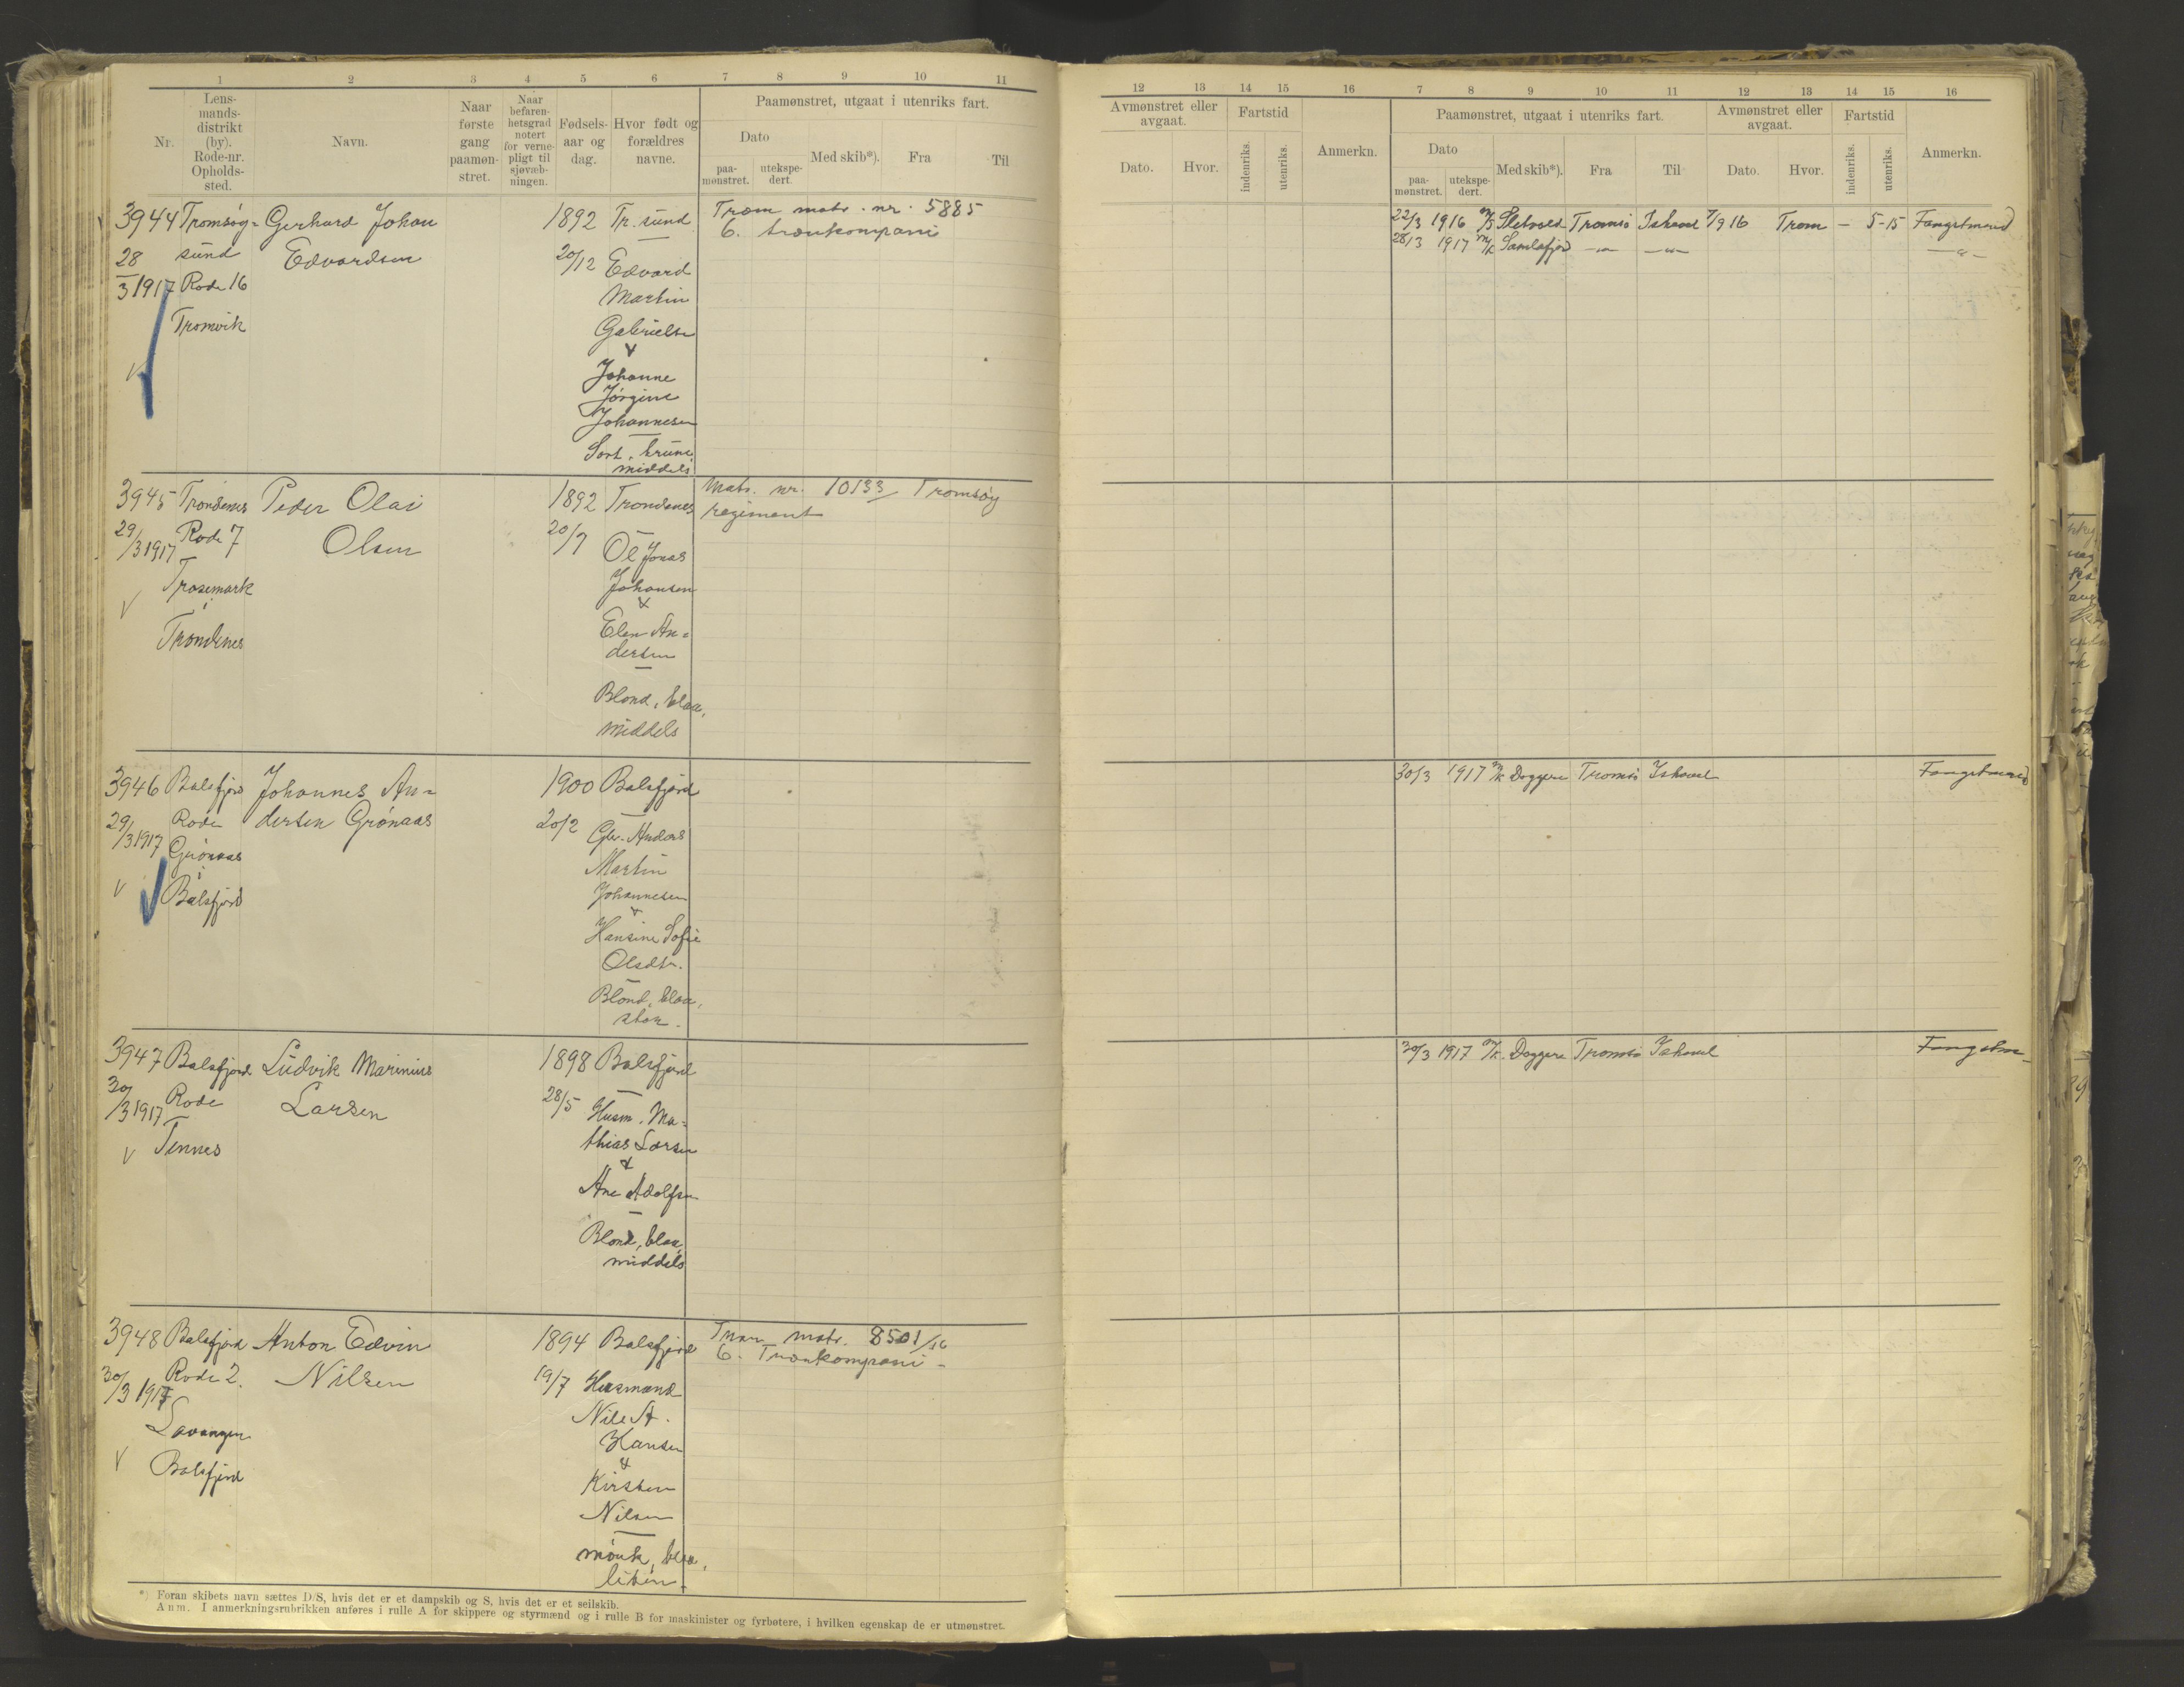 1 2 3 4 5 6 7 8 9 10 11
Nr.
Lens-
mands-
distrikt
(by).
Rode-nr.
Opholds-
sted.
Navn.
Naar
første
gang
paamøn-
stret.
Naar
befaren-
hetsgrad
notert
for verne-
pligt til
sjøvæb-
ningen.
Fødsels-
aar og
dag.
Hvor født og
forældres
navne.
Paamønstret, utgaat i utenriks fart.
Dato
paa-
mønstret.
utekspe-
dert.
Med skib*).
Fra
Til
3944 Tromsøy- Gerhard Johan 1892 Tr. sund Trom matr. nr. 5885
28 sund Edvardsen 20/12 Edvard 6. trænkompani
3 1917 Rode 16 Martin
Tromvik Gabrielsen
V &
Johanne
Jørgine
Johannesen
Sort, brune,
middels
3945 Trondenes Peder Olai 1892 Trondenes Matr. nr. 10133 Tromsøy
29/3 1917 Rode 7 Olsen 20/7 regiment
Ole Jonas
Trasemark Johansen
V i &
Trondenes Elen An-
dersen
Blond, blaa,
middels
3946 Balsfjord Johannes An- 1900 Balsfjord
29/3 1917 Rode dersen Grønaas 20/2 Gbr. Anders
Grønaas Martin
V i Johannesen
Balsfjord &
Hansine Sofie
Olsdtr.
Blond, blaa,
stor.
3947 Balsfjord Ludvik Marinius 1898 Balsfjord
30/3 1917 Rode Larsen 28/5 Husm. Ma-
Tennes thias Larsen
V &
Ane Adolfsen
Blond, blaa,
middels
3948 Balsfjord Anton Edvin 1894 Balsfjord matr. 8501/16
30/3 1917 Rode 2. Nilsen 19/7 Husmand 6. Trænkompani -
Lavangen Nils A.
Hansen
V Balsfjord &
Kirsten
Nilsen
mørk, blaa,
liten.
*) Foran skibets navn sættes D/S, hvis det er et dampskib og S, hvis det er et seilskib.
Anm. I anmerkningsrubrikken anføres i rulle A for skippere og styrmænd og i rulle B for maskinister og fyrbøtere, i hvilken egenskap de er utmønstret.
12 13 14 15 16 7 8 9 10 11 12 13 14 15 16
Avmønstret eller
avgaat.
Dato.
Hvor.
Fartstid
indenriks.
utenriks.
Anmerkn.
Paamønstret, utgaat i utenriks fart.
Dato
paa-
mønstret.
utekspe-
dert.
Med skib*).
Fra
Til
Avmønstret eller
avgaat.
Dato.
Hvor.
Fartstid
indenriks.
utenriks.
Anmerkn.
22/3 1916 M/S Sletvold Tromsö Ishavet 7/9 16 Trom - 5-15 Fangstmand
28/3 1917 M/k Samlafjord -"- -"- -"-
30/3 1917 M/k Doggere Tromsö Ishavet Fangstmand
30/3 1917 M/k. Doggere Tromsö Ishavet Fangstm-